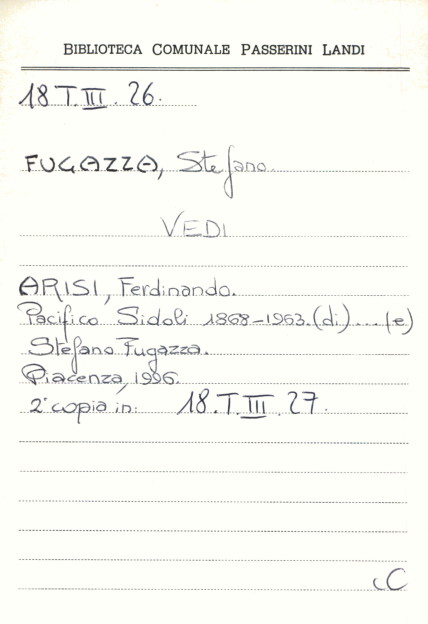 BIBLIOTECA COMUNALE PASSERINI LANDI
18 T. III. 26.
FUGAZZA, Stefano.
VEDI
ARISI, Ferdinando.
Pacifico Sidoli 1868-1963. (di) ... (e)
Stefano Fugazza.
Piacenza, 1996.
2ª copia in: 18. T. III. 27.